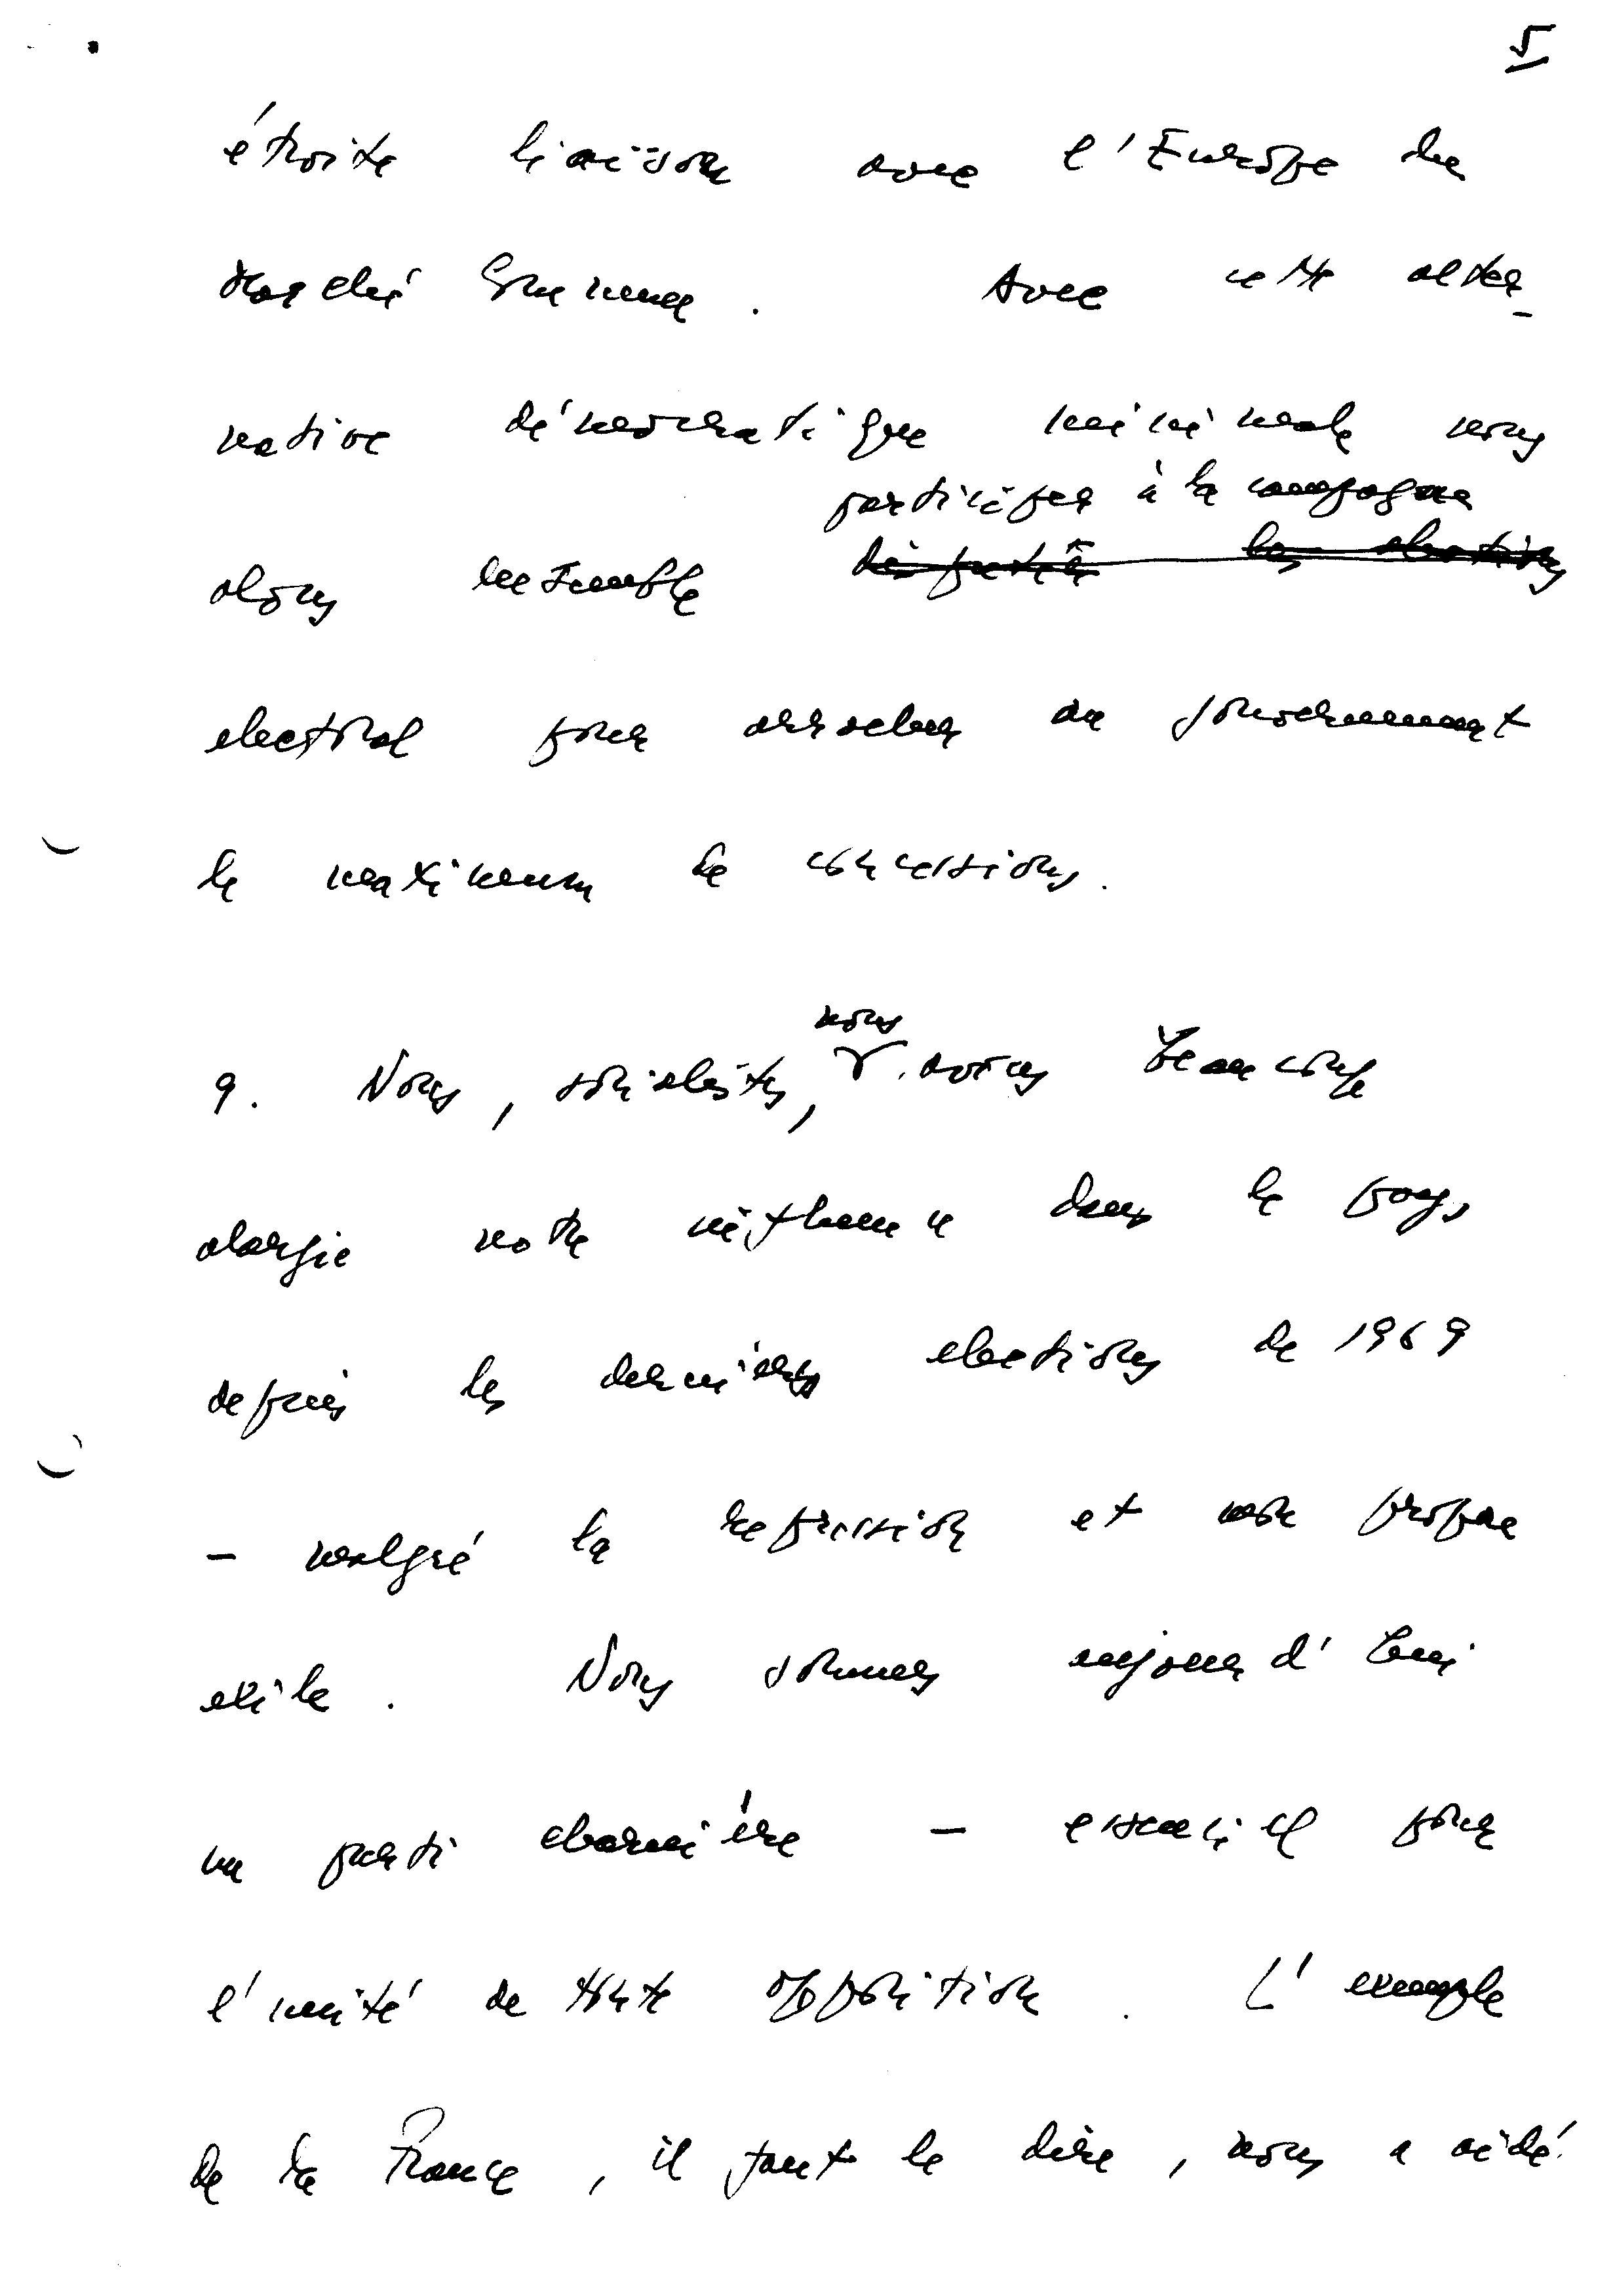 5
étroite liaison avec l'Europe du
Marché Commun. Avec cette alter-
native démocratique minimale nous
participer à la campagne
allons ensemble disputer les elections
electoral pour arracher au gouvernement
le maximum de concessions.
nous
9. Nous, socialistes, avons beaucoup
elargie notre influence dans le pays
depuis les dernières elections de 1969
- malgré la repression et mon propre
exile. Nous sommes aujourd'hui
un parti charnière - essenciel pour
l'unité de toute opposition. L'exemple
de la France, il faut le dire, nous a aidé